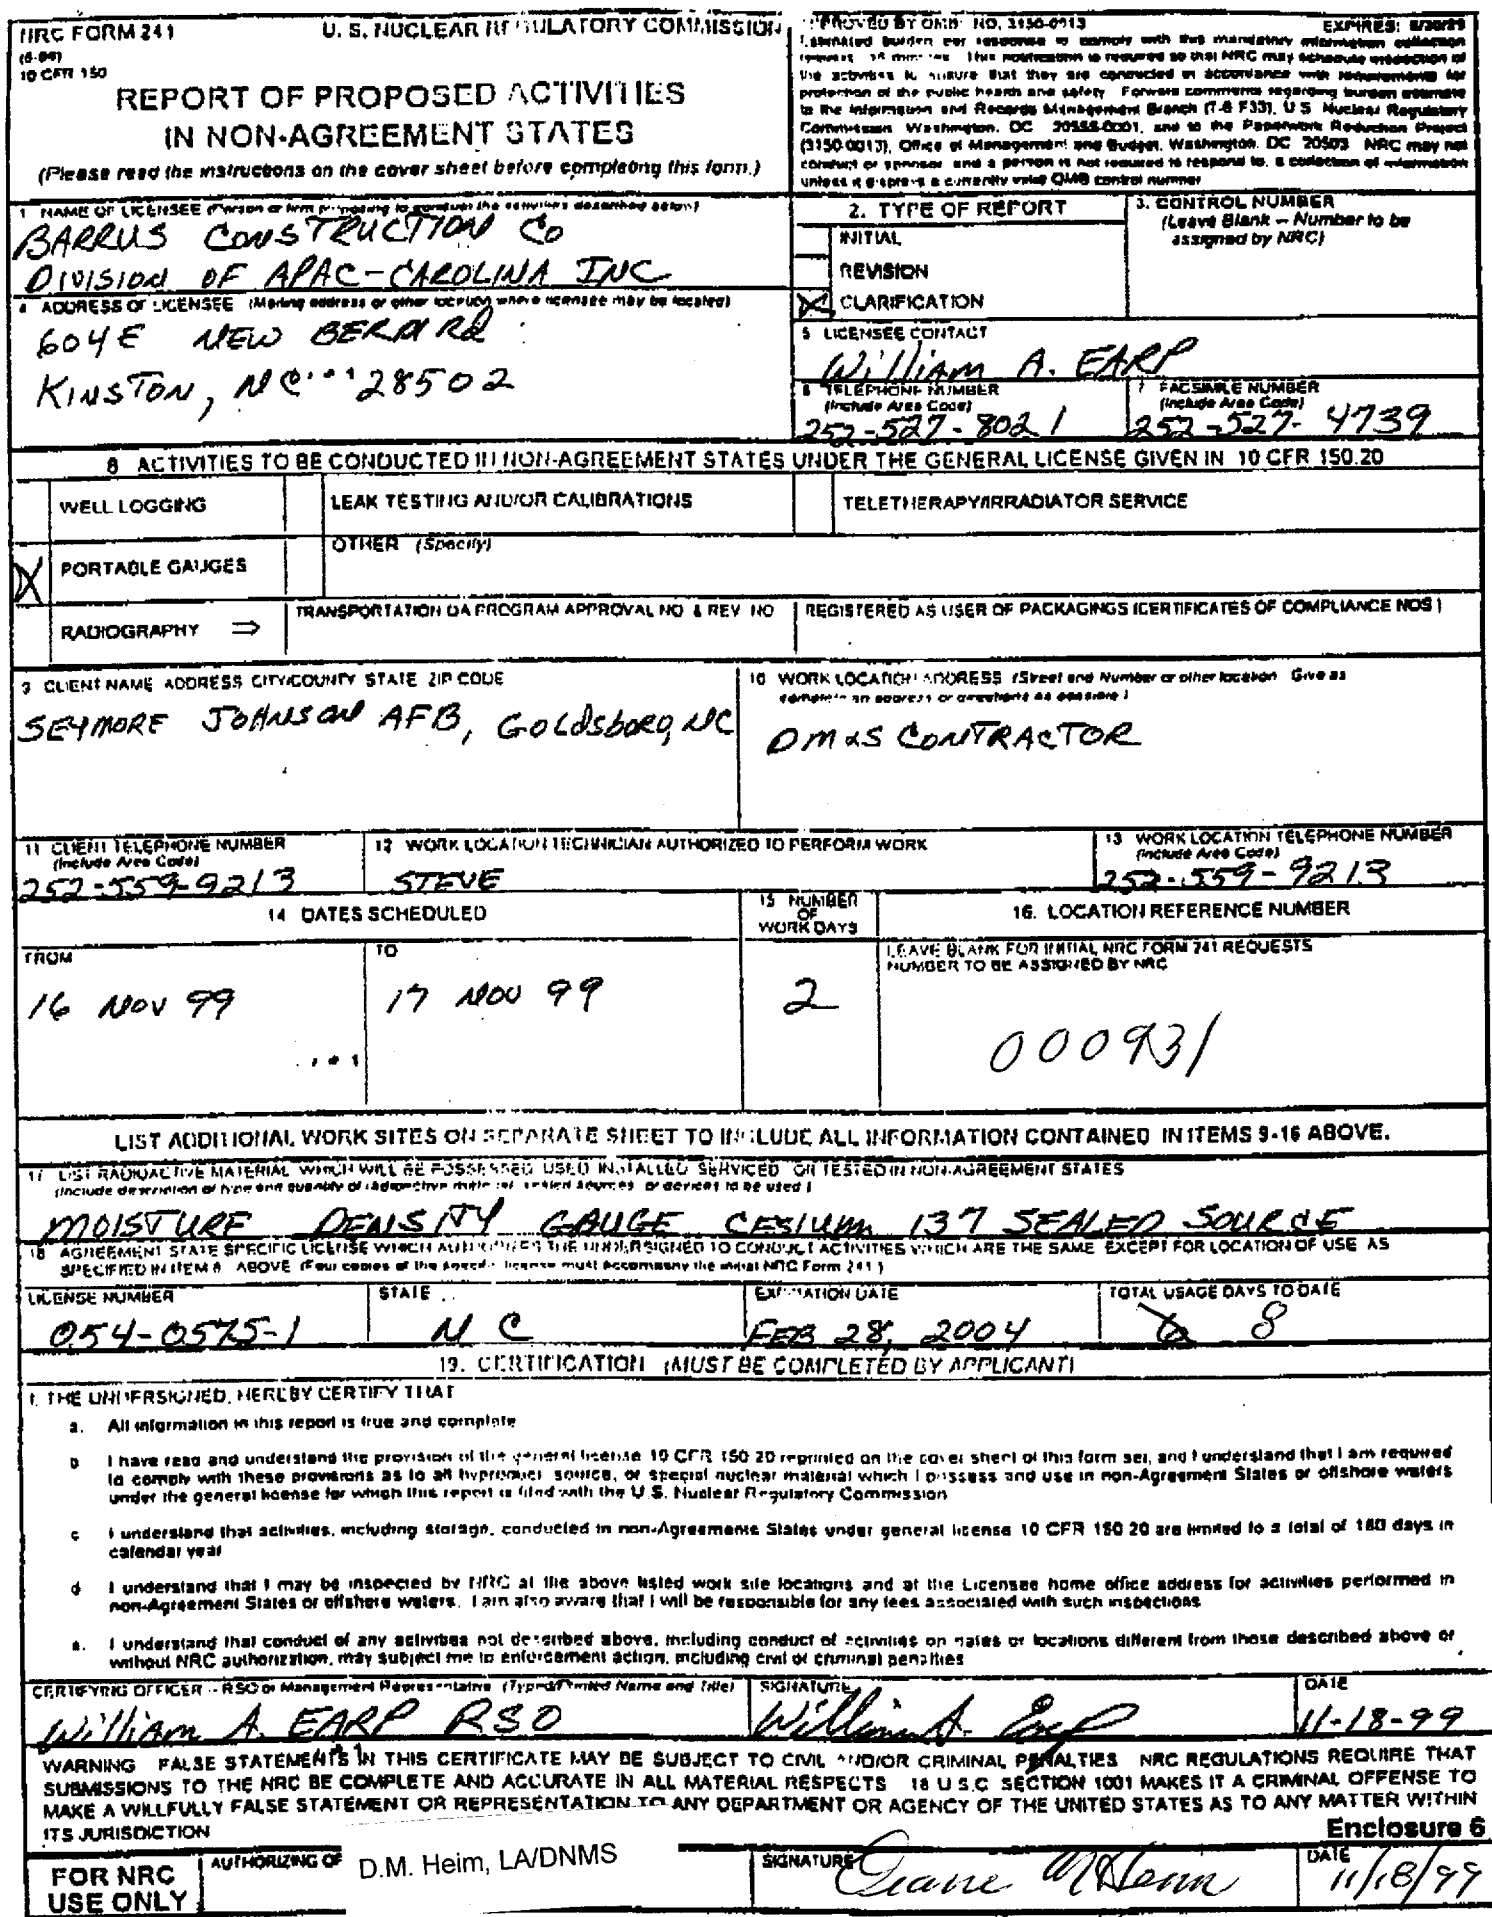 NRC FORM 241
(6-96)
10 CFR 150
U. S. NUCLEAR REGULATORY COMMISSION
REPORT OF PROPOSED ACTIVITIES
IN NON-AGREEMENT STATES
(Please read the instructions on the cover sheet before completing this form.)
APPROVED BY OMB: NO. 3150-0013
EXPIRES:
Estimated burden per response to comply with this mandatory information collection
request: 15 minutes. This notification is required so that NRC may schedule inspection of
the activities to ensure that they are conducted in accordance with requirements for
protection of the public health and safety. Forward comments regarding burden estimate
to the Information and Records Management Branch (T-6 F33), U.S. Nuclear Regulatory
Commission Washington, DC 20555-0001, and to the Paperwork Reduction Project
(3150-0013), Office of Management and Budget, Washington, DC 20503 NRC may not
conduct or sponsor and a person is not required to respond to, a collection of information
unless it displays a currently valid OMB control number
1 NAME OF LICENSEE (Person or firm proposing to conduct the activities described below)
BARRUS CONSTRUCTION Co
DIVISION OF APAC-CAROLINA INC
2. TYPE OF REPORT
INITIAL
REVISION
X CLARIFICATION
3. CONTROL NUMBER
(Leave Blank – Number to be
assigned by NRC)
4 ADDRESS OF LICENSEE (Mailing address or other location where licensee may be located)
604 E NEW BERN Rd
KINSTON, NC 28502
5 LICENSEE CONTACT
William A. EARP
6 TELEPHONE NUMBER
(Include Area Code)
252-527-8021
7 FACSIMILE NUMBER
(Include Area Code)
252-527-4739
8 ACTIVITIES TO BE CONDUCTED IN NON-AGREEMENT STATES UNDER THE GENERAL LICENSE GIVEN IN 10 CFR 150.20
WELL LOGGING
LEAK TESTING AND/OR CALIBRATIONS
TELETHERAPY/IRRADIATOR SERVICE
X PORTABLE GAUGES
OTHER (Specify)
RADIOGRAPHY ⇒
TRANSPORTATION QA PROGRAM APPROVAL NO & REV NO
REGISTERED AS USER OF PACKAGINGS (CERTIFICATES OF COMPLIANCE NOS)
9 CLIENT NAME ADDRESS CITY/COUNTY STATE ZIP CODE
SEYMORE JOHNSON AFB, GOLdsboro, NC
10 WORK LOCATION ADDRESS (Street and Number or other location Give as
complete an address or directions as possible)
DM&S CONTRACTOR
11 CLIENT TELEPHONE NUMBER
(Include Area Code)
252-559-9213
12 WORK LOCATION TECHNICIAN AUTHORIZED TO PERFORM WORK
STEVE
13 WORK LOCATION TELEPHONE NUMBER
(Include Area Code)
252-559-9213
14 DATES SCHEDULED
FROM
16 NOV 99
TO
17 NOV 99
15 NUMBER
OF
WORK DAYS
2
16. LOCATION REFERENCE NUMBER
LEAVE BLANK FOR INITIAL NRC FORM 241 REQUESTS
NUMBER TO BE ASSIGNED BY NRC
000931
LIST ADDITIONAL WORK SITES ON SEPARATE SHEET TO INCLUDE ALL INFORMATION CONTAINED IN ITEMS 9-16 ABOVE.
17 LIST RADIOACTIVE MATERIAL WHICH WILL BE POSSESSED USED INSTALLED SERVICED OR TESTED IN NON-AGREEMENT STATES
(Include description of type and quantity of radioactive material sealed sources or devices to be used)
MOISTURE DENSITY GAUGE CESIUM 137 SEALED SOURCE
18 AGREEMENT STATE SPECIFIC LICENSE WHICH AUTHORIZES THE UNDERSIGNED TO CONDUCT ACTIVITIES WHICH ARE THE SAME EXCEPT FOR LOCATION OF USE AS
SPECIFIED IN ITEM 8 ABOVE (Four copies of the specific license must accompany the initial NRC Form 241)
LICENSE NUMBER
054-0575-1
STATE
N C
EXPIRATION DATE
FEB 28, 2004
TOTAL USAGE DAYS TO DATE
8
19. CERTIFICATION (MUST BE COMPLETED BY APPLICANT)
I, THE UNDERSIGNED, HEREBY CERTIFY THAT
a. All information in this report is true and complete
b I have read and understand the provision of the general license 10 CFR 150 20 reprinted on the cover sheet of this form set, and I understand that I am required
to comply with these provisions as to all byproduct source, or special nuclear material which I possess and use in non-Agreement States or offshore waters
under the general license for which this report is filed with the U.S. Nuclear Regulatory Commission
c I understand that activities, including storage, conducted in non-Agreements States under general license 10 CFR 150 20 are limited to a total of 180 days in
calendar year
d I understand that I may be inspected by NRC at the above listed work site locations and at the Licensee home office address for activities performed in
non-Agreement States or offshore waters. I am also aware that I will be responsible for any fees associated with such inspections
e. I understand that conduct of any activities not described above, including conduct of activities on dates or locations different from those described above or
without NRC authorization, may subject me to enforcement action, including civil or criminal penalties
CERTIFYING OFFICER - RSO or Management Representative (Typed/Printed Name and Title)
William A. EARP RSO
SIGNATURE
William A. Earp
DATE
11-18-99
WARNING FALSE STATEMENTS IN THIS CERTIFICATE MAY BE SUBJECT TO CIVIL AND/OR CRIMINAL PENALTIES NRC REGULATIONS REQUIRE THAT
SUBMISSIONS TO THE NRC BE COMPLETE AND ACCURATE IN ALL MATERIAL RESPECTS 18 U.S.C SECTION 1001 MAKES IT A CRIMINAL OFFENSE TO
MAKE A WILLFULLY FALSE STATEMENT OR REPRESENTATION TO ANY DEPARTMENT OR AGENCY OF THE UNITED STATES AS TO ANY MATTER WITHIN
ITS JURISDICTION
Enclosure 6
FOR NRC
USE ONLY
AUTHORIZING OF
D.M. Heim, LA/DNMS
SIGNATURE
Diane M Heim
DATE
11/18/99